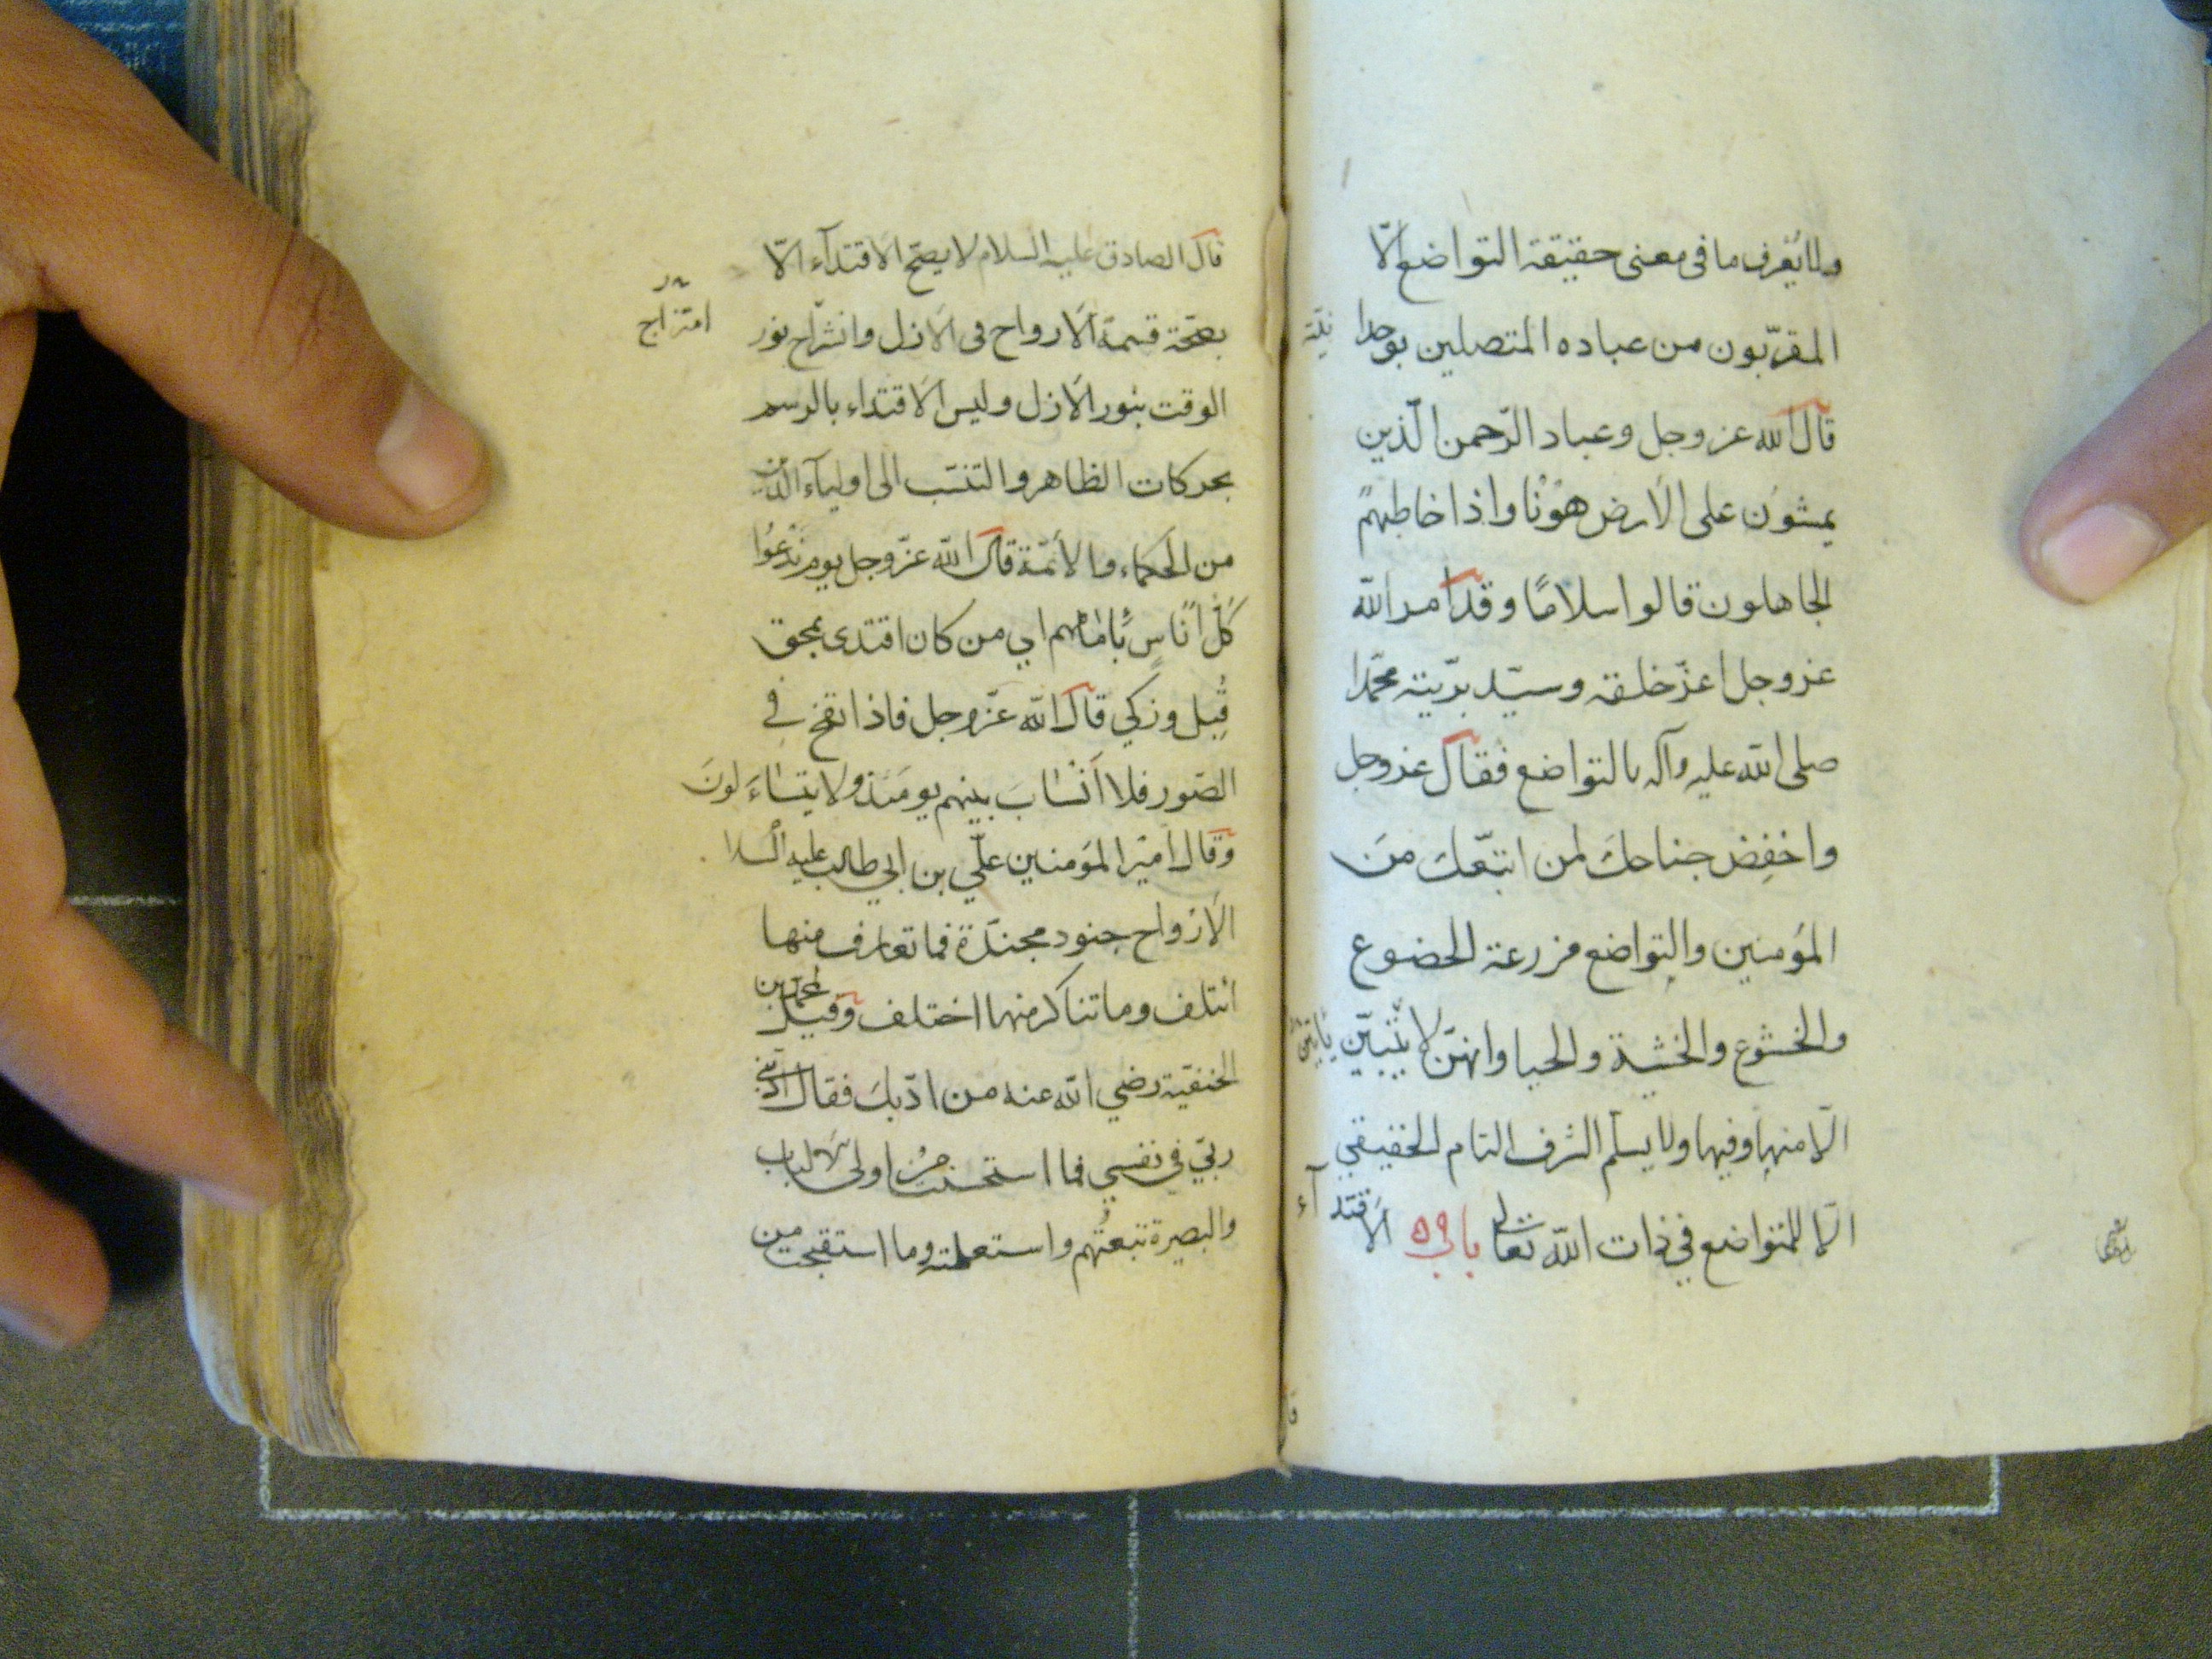 ولا يُعْرِف ما فى معنى حقيقة التواضع الّا
المقرّبون من عباده المتصلين بوحدا نيّة
قال الله عز وجل وعباد الرّحمن الّذين
يمشون على الارض هَوْنًا واذا خاطبهم
الجاهلون قالوا سلامًا وقد امر الله
عز وجل اعزّ خلقه وسيّد بريّته محمّدا
صلى الله عليه وآله بالتواضع فقال عز وجل
واخفِض جناحكَ لمن اتبّعك منَ
المؤمنين والتواضع مزرعة الخضوع
والخشوع والخشية والحيا وانهنّ لا يتبيّن يأتين
الّا منها وفيها ولا يسلم الشرف التام الحقيقي
الّا للمتواضع في ذات الله تعالى باب ٥٩ الاقتدآء
قال الصادق عليه السلام لا يصحّ الاقتدآء الّا
بصحّة قسمة الارواح فى الازل وانشراح نور
امتزاج
الوقت بنور الازل وليس الاقتداء بالرسم
بحركات الظاهر والتنسّب الى اوليآء الدّين
من الحكماء والأئمّة قال الله عزّ وجل يوم ندعُوا
كُلّ اُناسٍ بِامامهم اي من كان اقتدى بمحق
قُبِل وزكي قال الله عزّ وجل فاذا نفخ في
الصّور فلا اَنْسابَ بينهم يومَئذ ولا يتساءَلونَ
وقال امير المؤمنين علّي بن ابي طالب عليه السلا
الاَرْواح جنود مجنّدة فما تعارف منها
ائتلف وما تناكر منها اختلف وقيل لمحمّد بن
الحنفيّة رضي الله عنه من ادّبكَ فقال ادّبني
ربّي في نفسي فما استحسنت من اولى الالباب
والبصيرة تبعتُهم به واستعملته وما استقبحت من